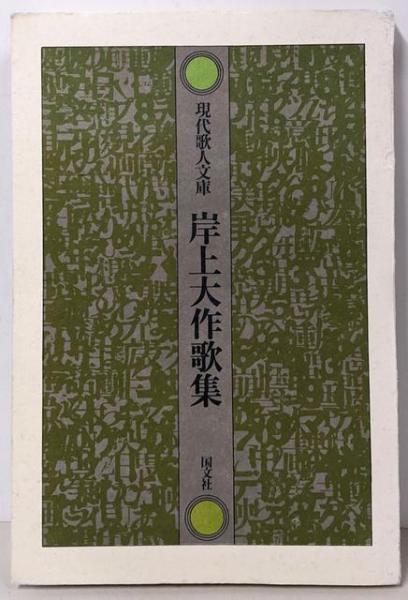 現代歌人文庫
岸上大作歌集
国文社